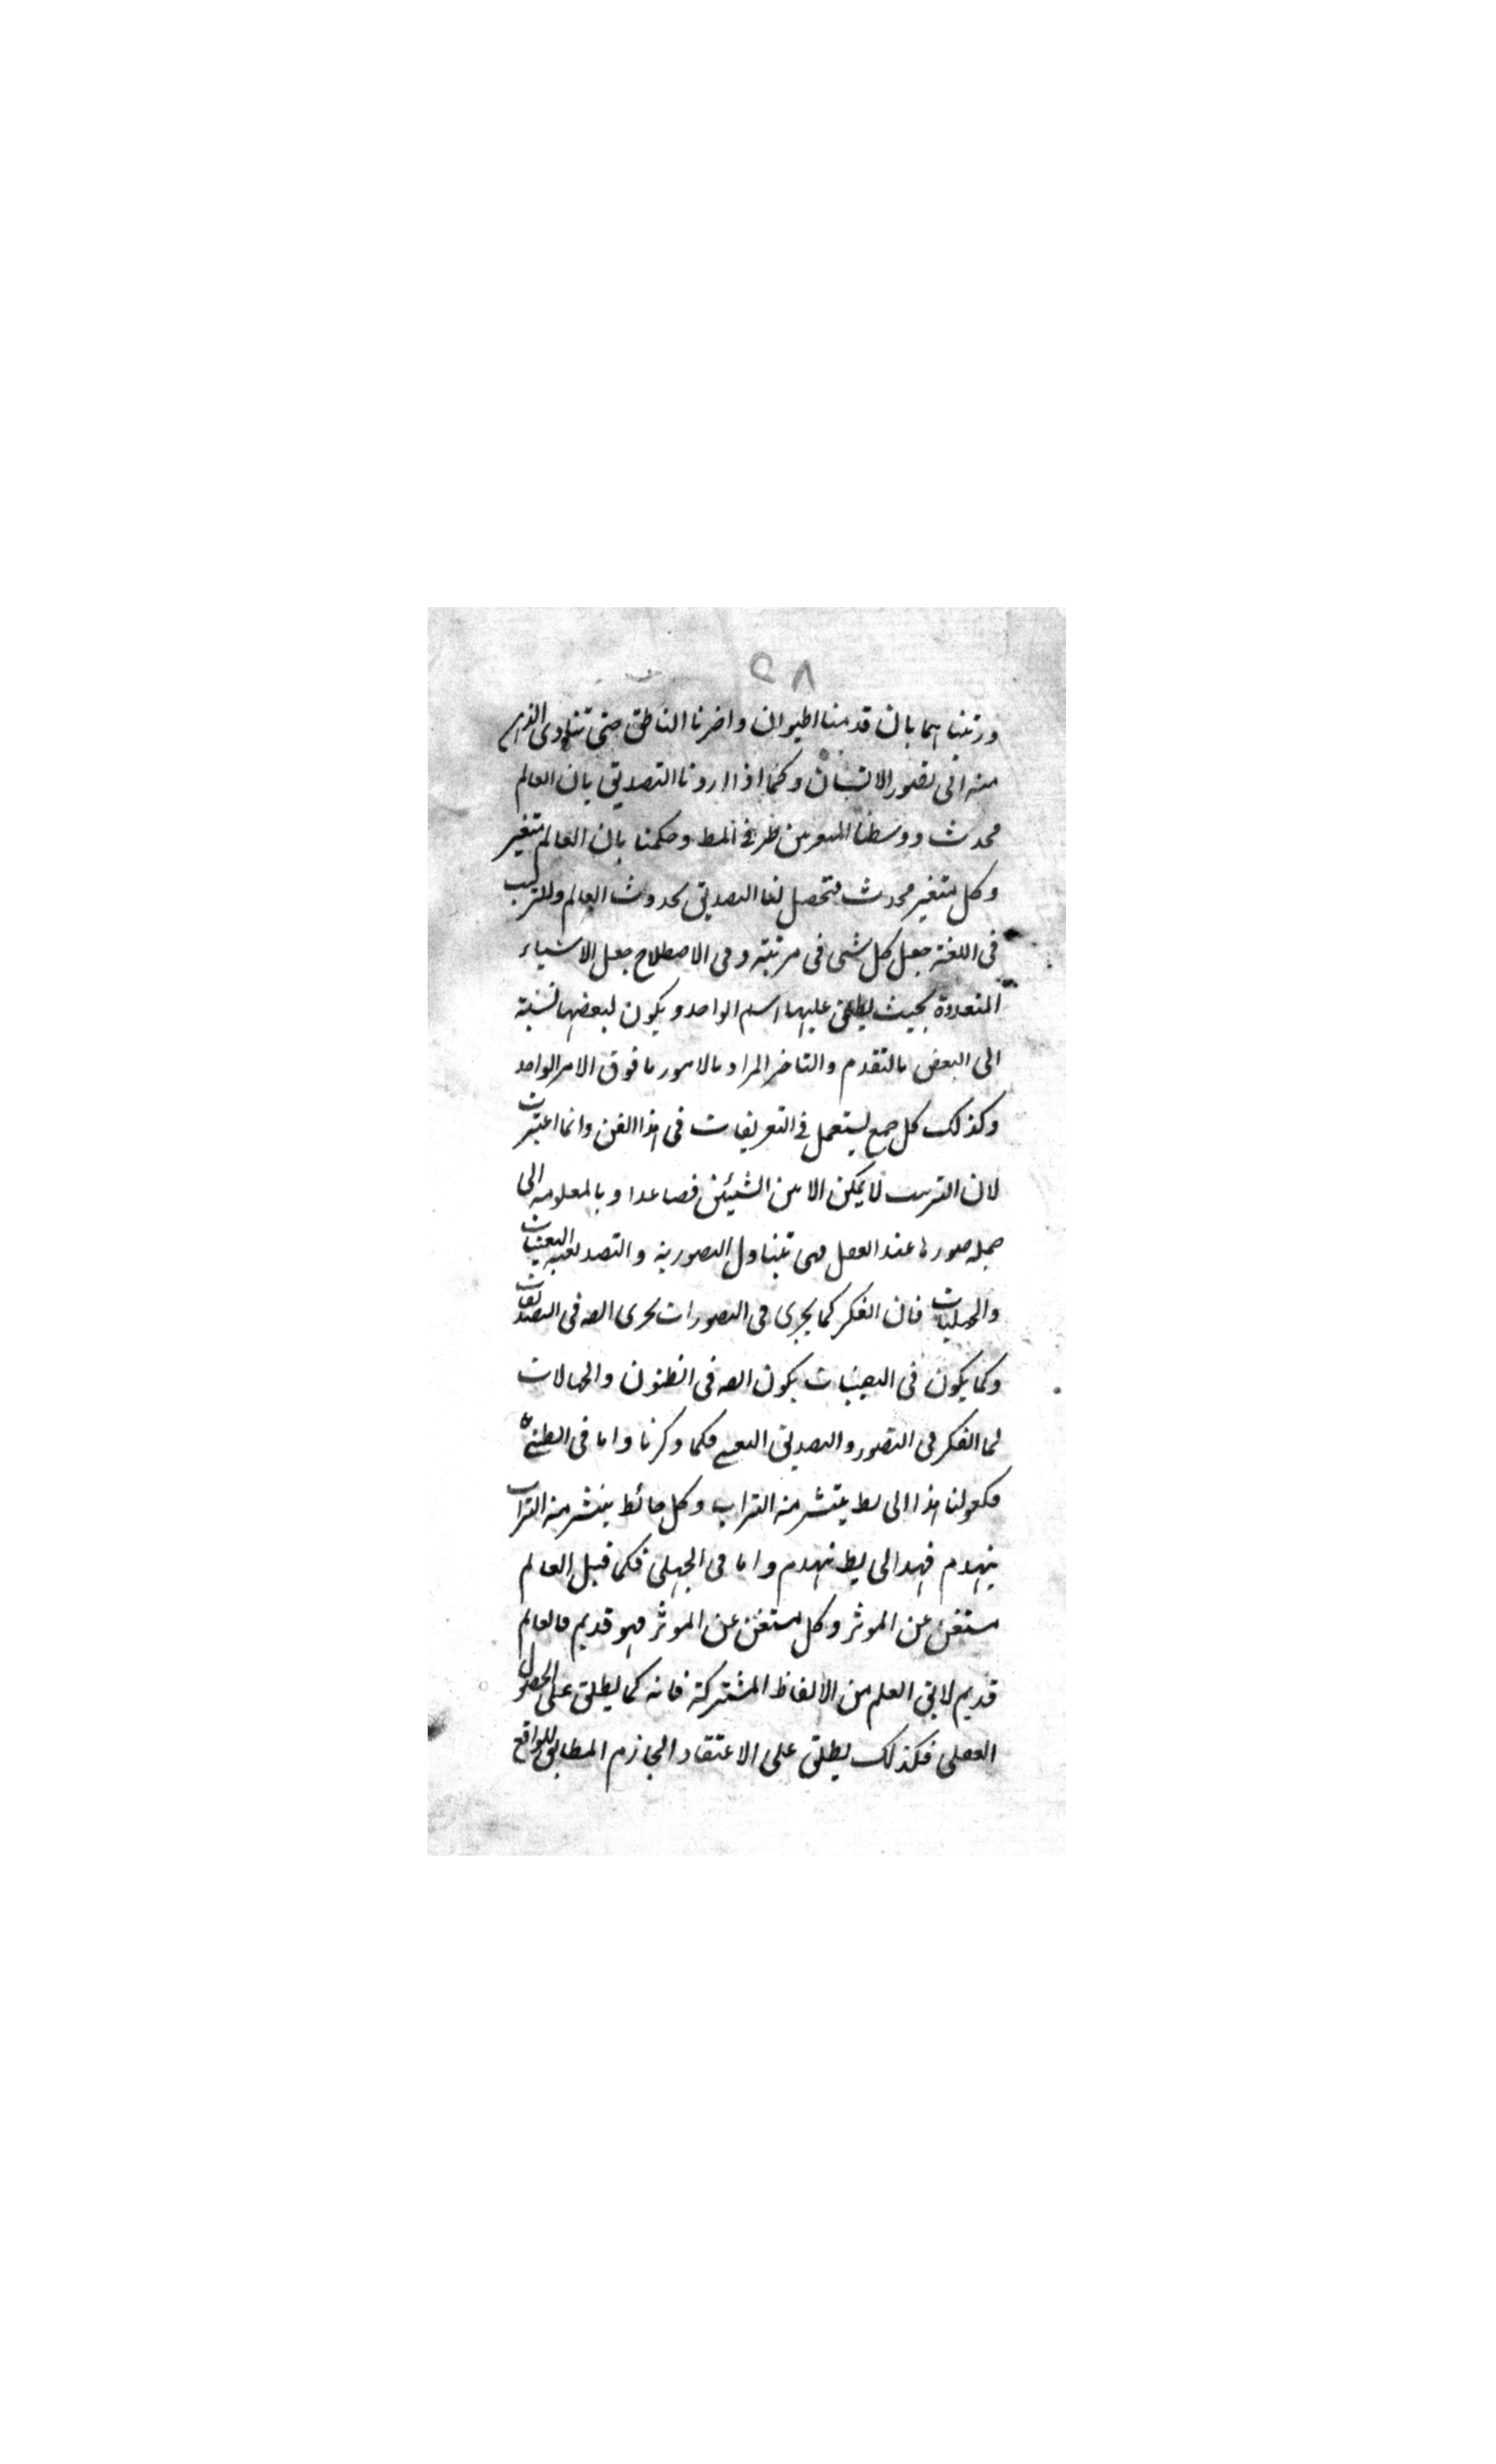 ٥٨
ورتبناهما بان قدمنا الحيوان واخرنا الناطق حتى تتادى الذهن
منه الى تصور الانسان وكما اذا اردنا التصديق بان العالم
محدث ووسطنا المتغير بين طرفى المط وحكمنا بان العالم متغير
وكل متغير محدث فتحصل لنا التصديق بحدوث العالم والترتيب
فى اللغة جعل كل شى فى مرتبته وفى الاصطلاح جعل الاشياء
المتعددة بحيث يطلق عليها اسم الواحد ويكون لبعضها نسبة
الى البعض بالتقدم والتاخر المراد بالامور ما فوق الامر الواحد
وكذلك كل جمع يستعمل فى التعريفات فى هذا الفن وانما اعتبرت
لان الترتيب لا يمكن الا بين الشيئين فصاعدا وبالمعلومه الحا
صله صورها عند العقل فهى تتناول التصورية والتصديقية اليقينيات
والجهليات فان الفكر كما يجرى فى التصورات يجرى ايضه فى التصديقات
وكما يكون فى اليقينيات يكون ايضه فى الظنون والجهالات
اما الفكر فى التصور والتصديق اليقينى فكما ذكرنا واما فى الظنى
فكقولنا هذا الحايط ينتشر منه التراب وكل حائط ينتشر منه التراب
ينهدم فهذا الحايط ينهدم واما فى الجهلى فكما قيل العالم
مستغن عن الموثر وكل مستغن عن الموثر فهو قديم فالعالم
قديم لا يق العلم من الالفاظ المشتركة فانه كما يطلق على الحصول
العقلى فكذلك يطلق على الاعتقاد الجازم المطابق للواقع